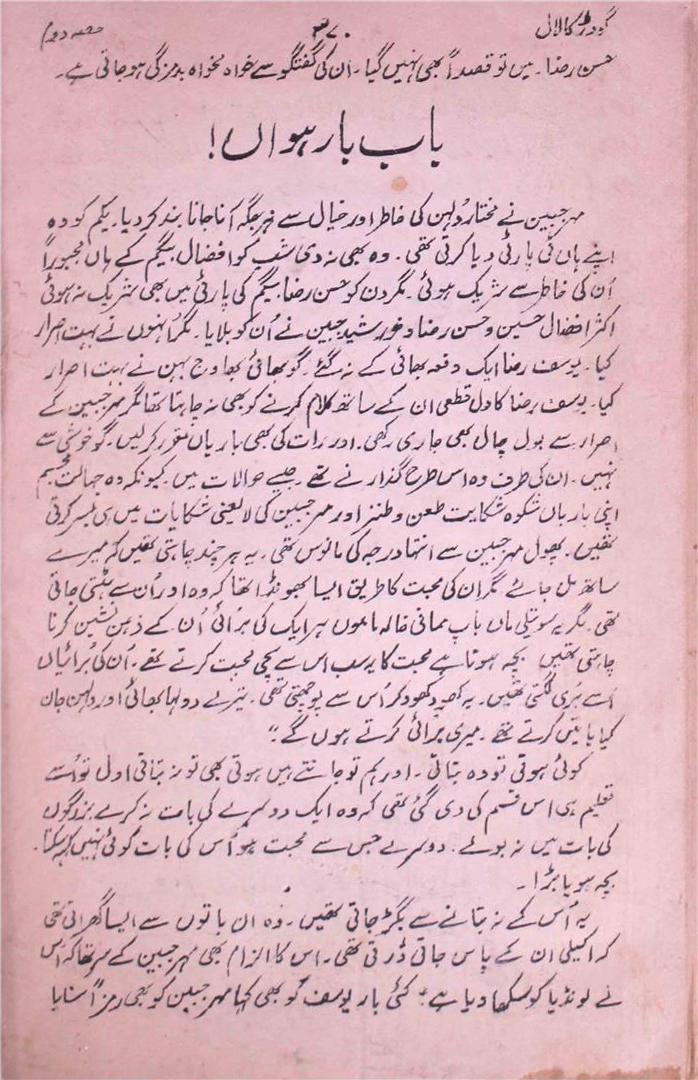 گودڑ کا لال ۳۷۰ حصہ دوم
حسن رضا۔ میں تو قصداً بھی نہیں گیا۔ ان کی گفتگو سے خواہ مخواہ بدمزگی ہو جاتی ہے۔
باب بارھواں!
مہر جبین نے مختار دلہن کی خاطر اور خیال سے ہر جگہ آنا جانا بند کر دیا۔ یکم کو وہ
اپنے ہاں ٹی پارٹی دیا کرتی تھی۔ وہ بھی نہ دی شب کو افضال بیگم کے ہاں مجبوراً
اُن کی خاطر سے شریک ہوئی۔ مگر دن کو حسن رضا بیگم کی پارٹی میں بھی شریک نہ ہوئی
اکثر افضال حسین و حسن رضا و خورشید جبین نے اُن کو بلایا۔ مگر انہوں نے بہت اصرار
کیا۔ یوسف رضا ایک دفعہ بھائی کے نہ گئے۔ گو بھائی بھاوج بہن نے بہت اصرار
کیا۔ یوسف رضا کا دل قطعی ان کے ساتھ کلام کرنے کو بھی نہ چاہتا تھا مگر مہر جبین کے
اصرار سے بول چال بھی جاری رکھی۔ اور رات کی بھی باریاں مقرر کر لیں۔ گو خوشی سے
نہیں۔ ان کی طرف وہ اس طرح گذارتے تھے۔ جیسے حوالات میں۔ کیونکہ وہ جہالت مجسم
اپنی باریاں شکوہ شکایت طعن و طنز اور مہر جبین کی لایعنی شکایات میں ہی بسر کرتی
تھیں۔ پھول مہر جبین سے انتہا درجہ کی مانوس تھی۔ یہ ہر چند چاہتی تھیں کہ میرے
ساتھ مل جائے مگر ان کی محبت کا طریق ایسا بھونڈا تھا کہ وہ اور اُن سے ہٹتی جاتی
تھی۔ مگر یہ سوتیلی ماں باپ ممانی خالہ ماموں ہر ایک کی برائی اُن کے ذہن نشین کرنا
چاہتی تھیں بچہ ہوتا ہے محبت کا یہ سب اس سے سچی محبت کرتے تھے۔ ان کی برائیاں
اُسے بری لگتی تھیں۔ یہ کھود کھود کر اُس سے پوچھتی تھی۔ تیرے دولہا بھائی اور دلہن جان
کیا باتیں کرتے تھے۔ میری برائی کرتے ہوں گے۔"
کوئی ہوتی تو وہ بتاتی۔ اور ہم تو جانتے ہیں ہوتی بھی تو نہ بتاتی اول تو اُسے
تعلیم ہی اس قسم کی دی گئی تھی کہ وہ ایک دوسرے کی بات نہ کرے بزرگوں
کی بات میں نہ بولے۔ دوسرے جس سے محبت ہو اُس کی بات کوئی نہیں کہہ سکتا۔
بچہ ہو یا بڑا۔
یہ اُس کے نہ بتانے سے بگڑ جاتی تھیں۔ وہ ان باتوں سے ایسا گھبراتی تھی
کہ اکیلی ان کے پاس جاتی ڈرتی تھی۔ اس کا الزام بھی مہر جبین کے سر تھا کہ اُس
نے لونڈیا کو سکھا دیا ہے۔ کئی بار یوسف کو بھی کہا مہر جبین کو بھی رمزاً سنایا